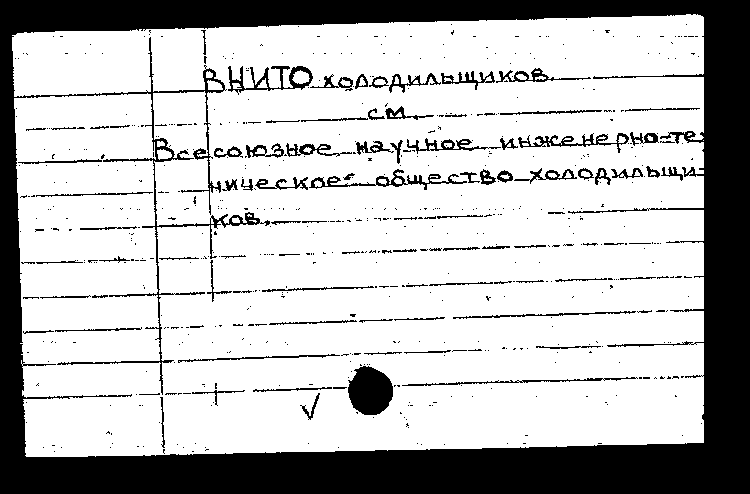 ВНИТО холодильщиков.
см.
Всесоюзное научное инженерно-тех
ническое общество холодильщи-
ков.